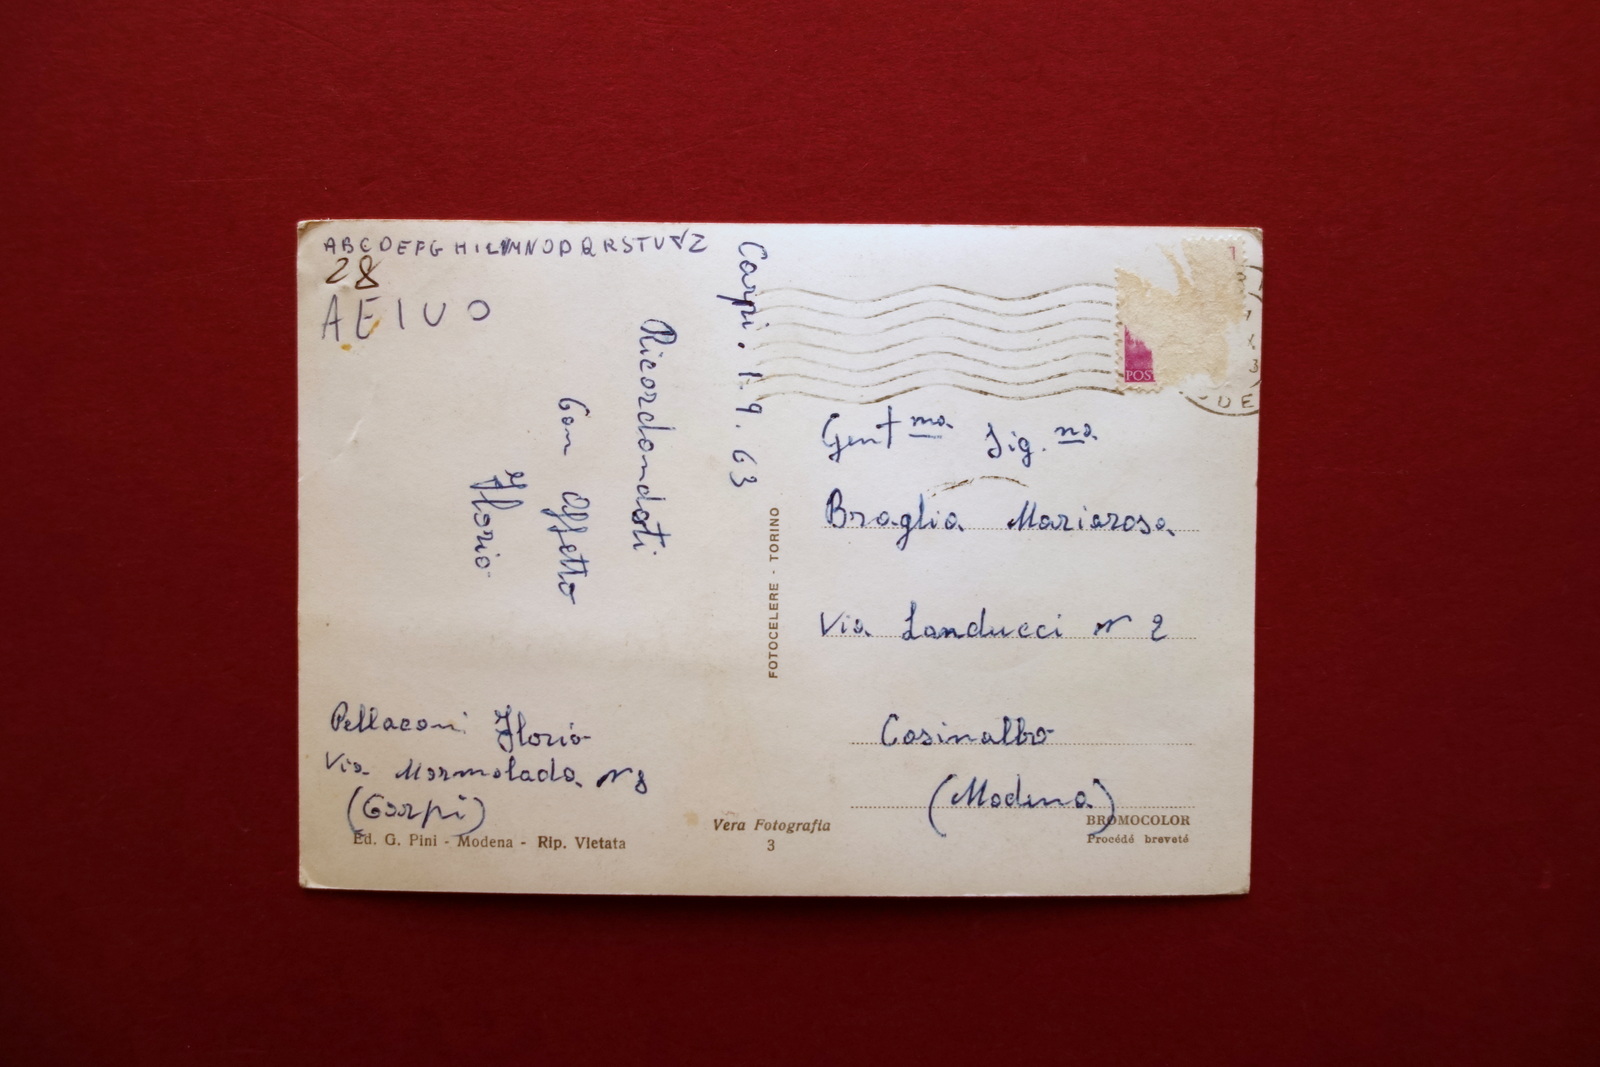 ABCDEFG HILMNOPQRSTUVZ
28
AEIUO
Carpi. 1.9.63
Ricordandoti
Con Affetto
Ilorio
Pellaconi Ilorio
Via Marmolada N 8
(Carpi)
Ed. G. Pini - Modena - Rip. Vietata
FOTOCELERE - TORINO
Vera Fotografia
3
POS
Gent ma Sig. na
Braglia Mariarosa
Via Landucci N 2
Casinalbo
(Modena)
BROMOCOLOR
Procédé breveté